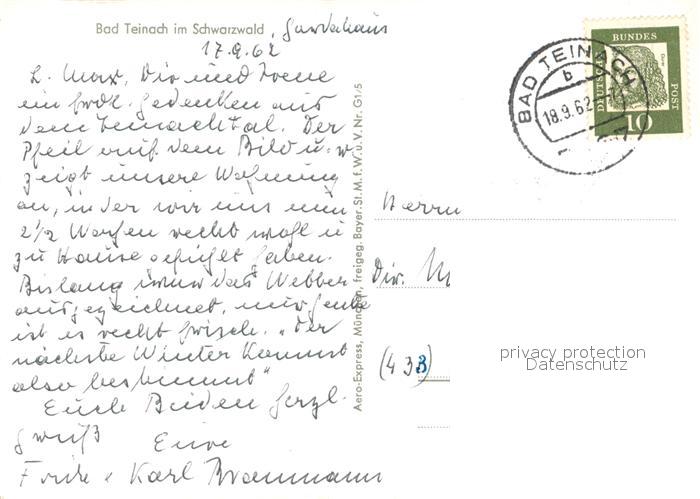 Bad Teinach im Schwarzwald, Gartenhaus
17.9.62
L. Max, Dir und Irene
ein frdl. Gedenken aus
dem Teinachtal. Der
Pfeil auf dem Bild u.
zeigt unsere Wohnung
an, in der wir uns nun
2 1/2 Wochen recht wohl u
zu Hause gefühlt haben.
Bislang war das Wetter
ausgezeichnet, nur heute
ist es recht frisch. „Der
nächste Winter kommt
also bestimmt"
Euch Beiden herzl.
Gruß Eure
u Karl
Aero-Express, München, freigeg. Bayer. St. M. f. W. u. V. Nr. G1/5
DEUTSCHE
BUNDES
POST
10
BAD TEINACH
b
18.9.62
Herrn
Dir. M
(433)
privacy protection
Datenschutz